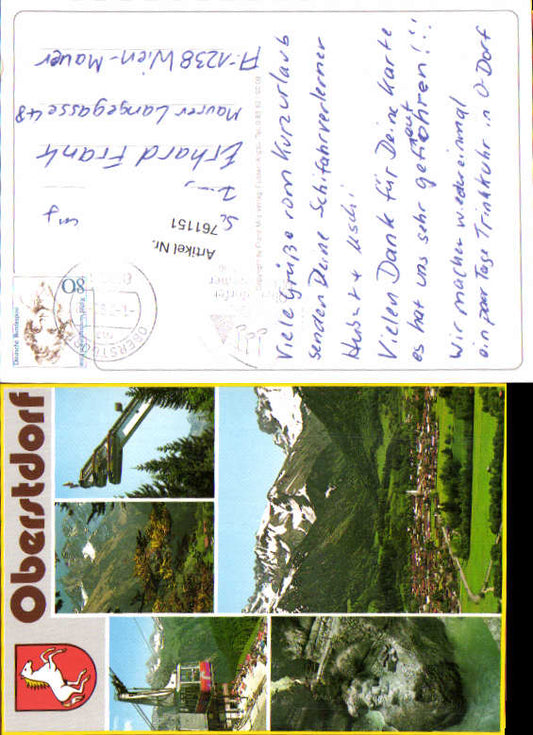 Viele Grüße vom Kurzurlaub
senden Deine Schifahrverlerner
Hubert + Uschi
Vielen Dank für Deine Karte
es hat uns sehr gefreut
Wir machen wieder einmal
ein paar Tage Trinkkuhr in O-Dorf
Artikel Nr.
761151
Erhard Frank
Maurer Langegasse 48
A-1238 Wien-Mauer
Deutsche Bundespost
80
OBERSTDORF
Oberstdorf